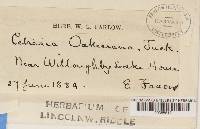 HERB. W. G. FARLOW.
Cetraria Oakesiana, Tuck.
Near Willoughby Lake House
27 June. 1884. E. Faxon
HERBARIUM OF
LINCOLN W. RIDDLE